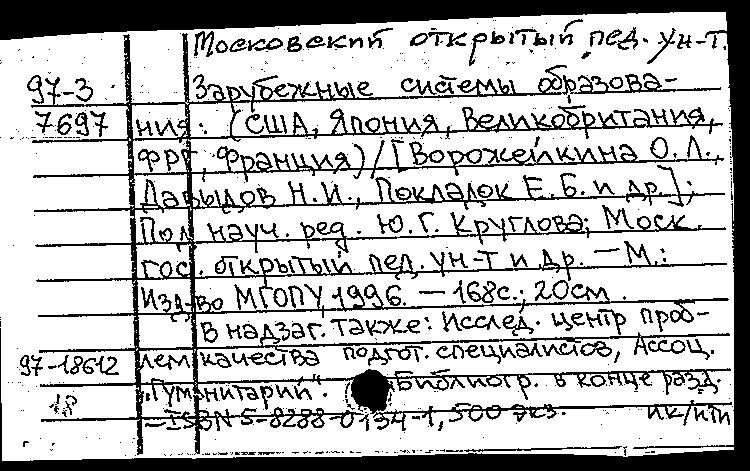 Московский открытый пед. ун-т.
97-3 Зарубежные системы образова-
7697 ния: (США, Япония, Великобритания,
ФРГ, Франция) / [Ворожейкина О.Л.,
Давыдов Н.И., Покладок Е.Б. и др.];
Под науч. ред. Ю.Г. Круглова; Моск.
гос. открытый пед. ун-т и др. — М.:
Изд-во МГОПУ, 1996. — 168с.; 20см.
В надзаг. также: Исслед. центр проб-
97-18612 лем качества подгот. специалистов, Ассоц.
18 "Гуманитарий". Библиогр. в конце разд.
— ISBN 5-8288-0134-1, 500 экз.